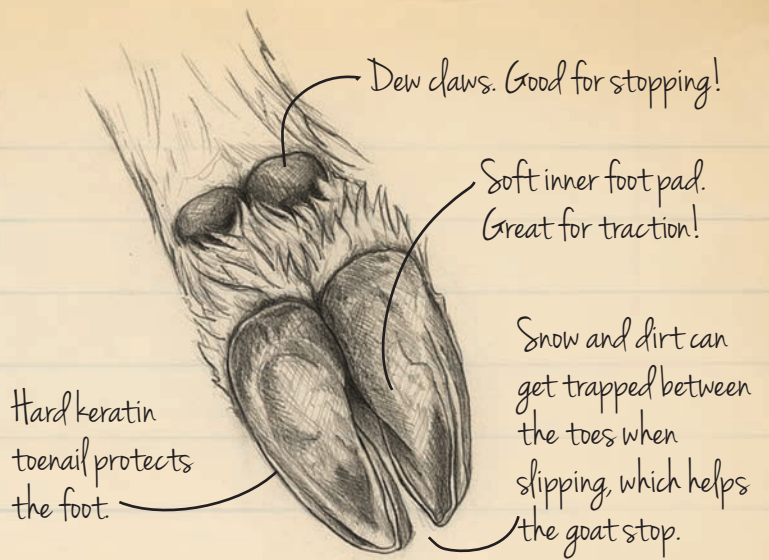 Dew claws. Good for stopping!
Soft inner foot pad.
Great for traction!
Snow and dirt can
get trapped between
the toes when
slipping, which helps
the goat stop.
Hard keratin
toenail protects
the foot.